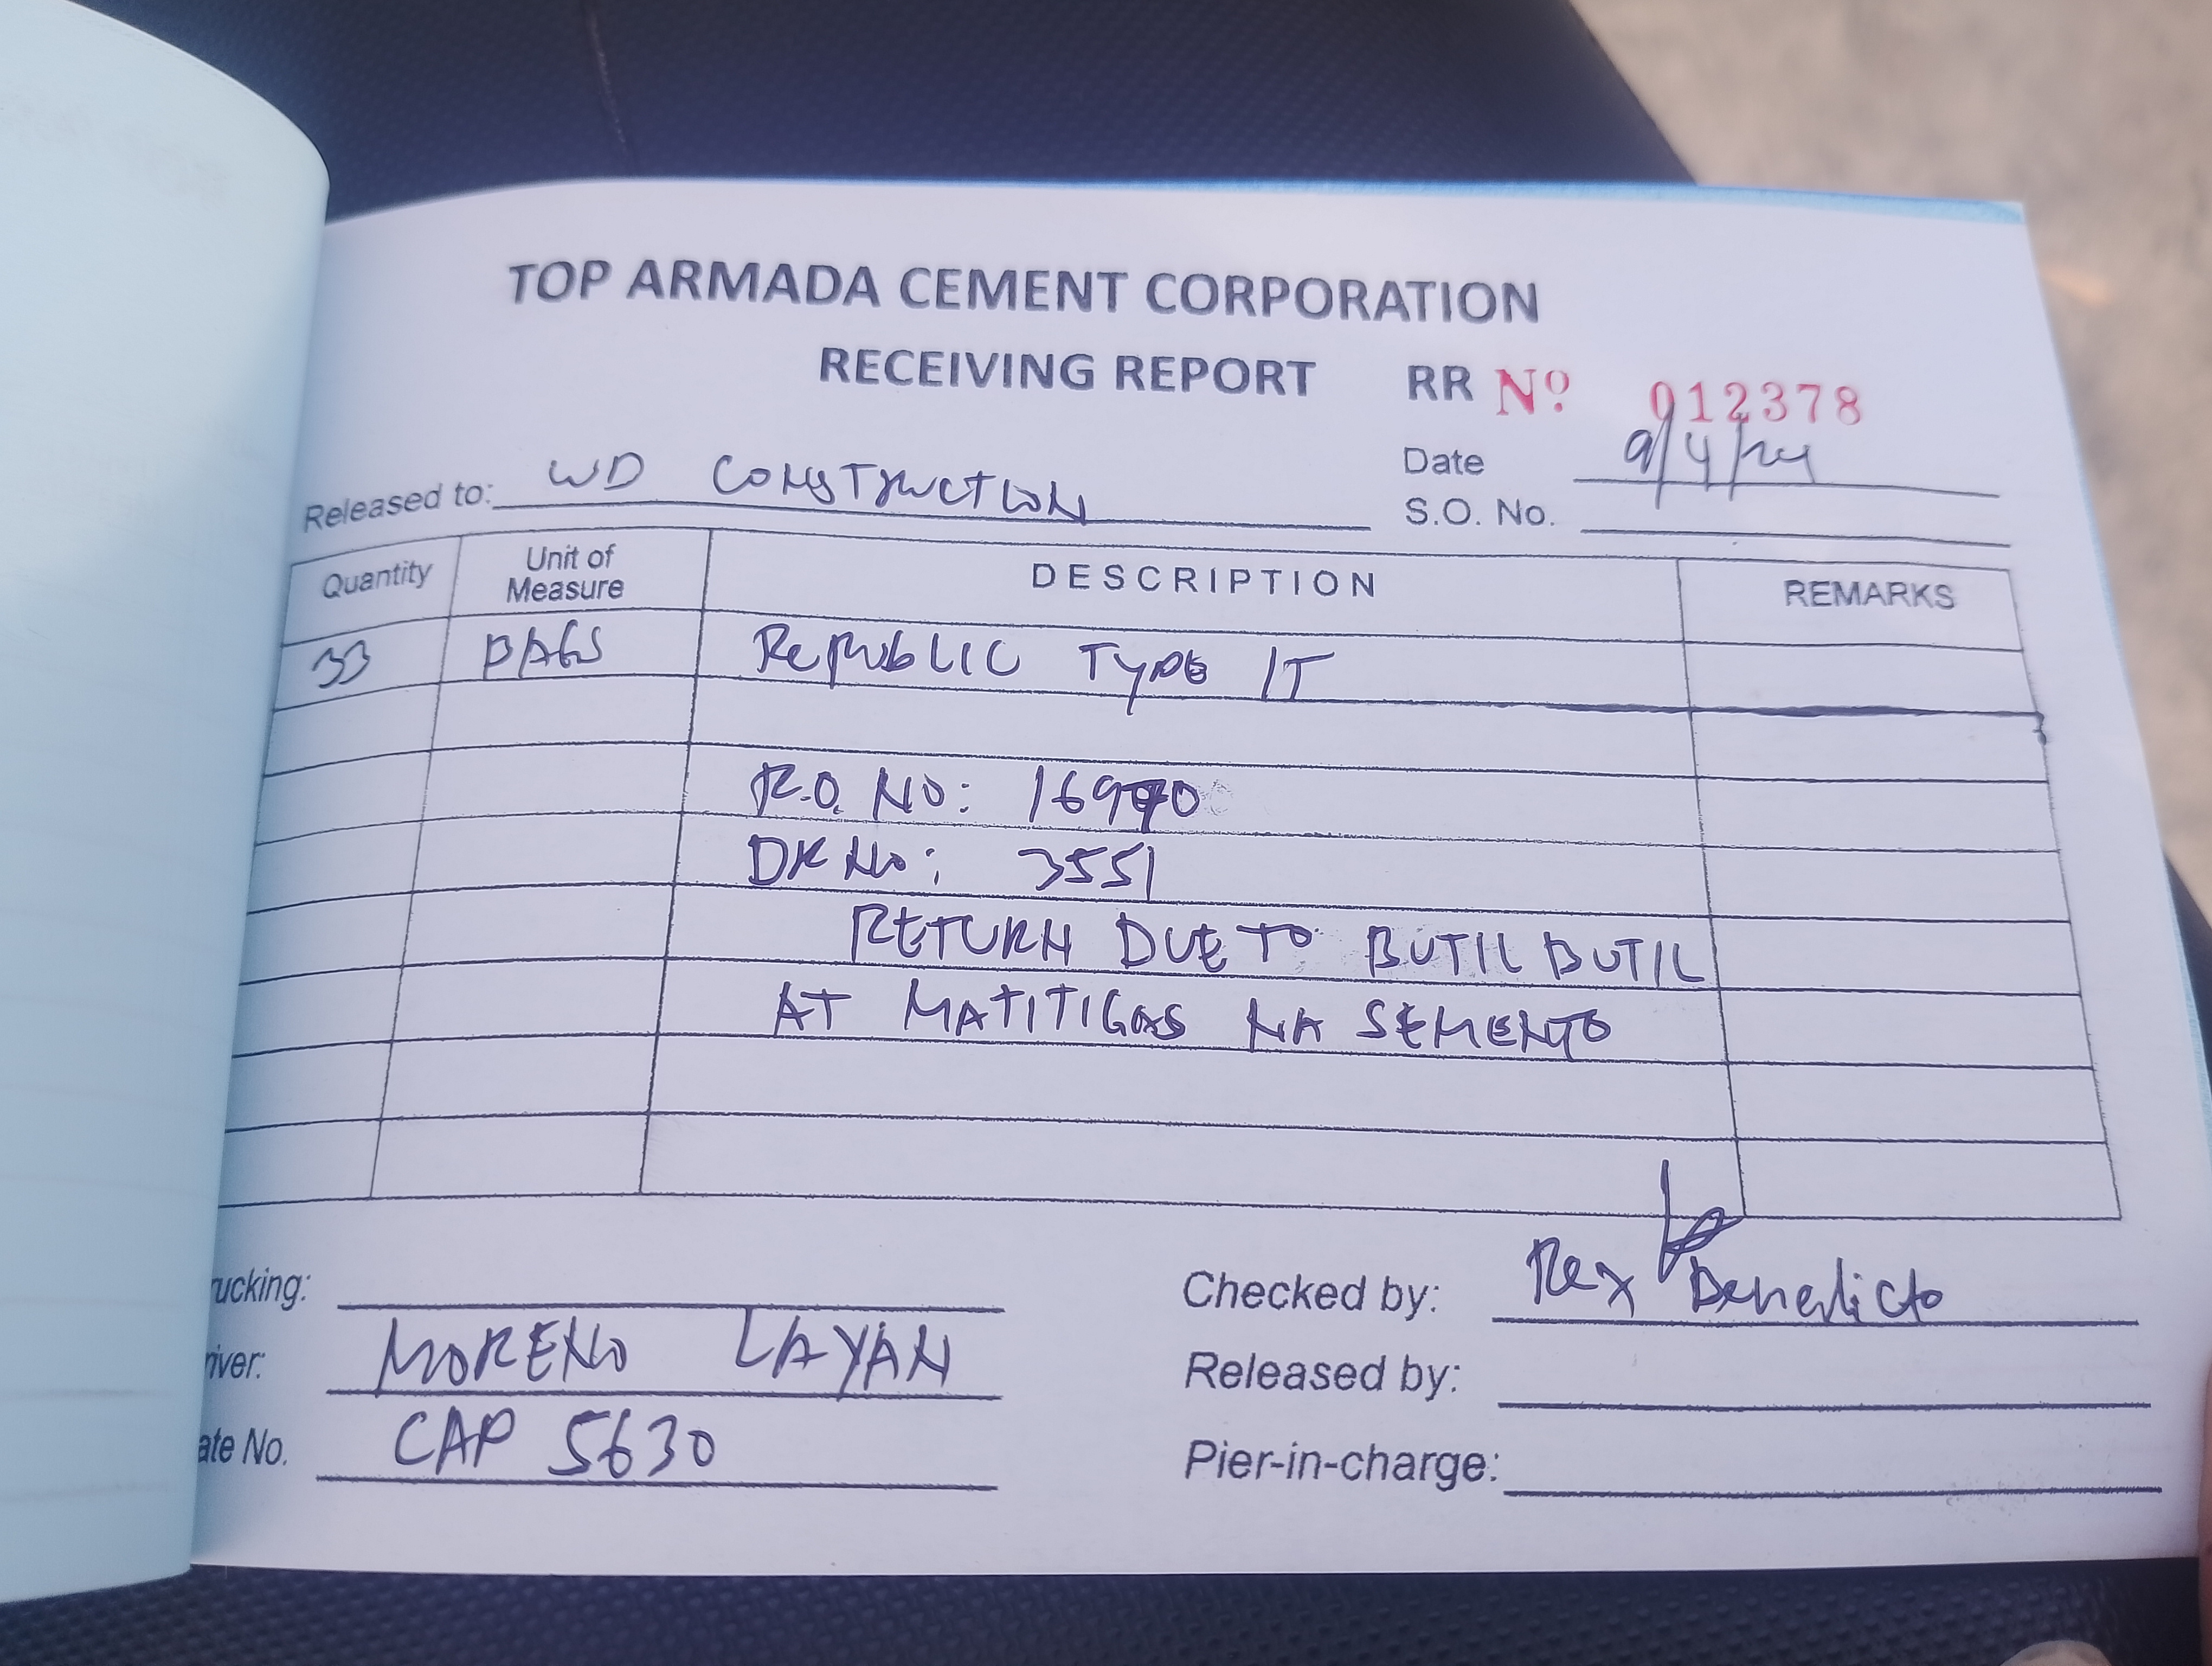 TOP ARMADA CEMENT CORPORATION
RECEIVING REPORT RR Nº 012378
Date 9/4/24
Released to: WD CONSTRUCTION
S.O. No.
Quantity Unit of Measure DESCRIPTION REMARKS
33 BAGS REPUBLIC TYPE IT
R.O. NO:
DR NO: 3551
RETURN DUE TO BUTIL BUTIL
AT MATITIGAS NA SEMENTO
rucking:
Checked by: Rex Benedicto
river: MORENO LAYAN
Released by:
ate No. CAP 5630
Pier-in-charge: